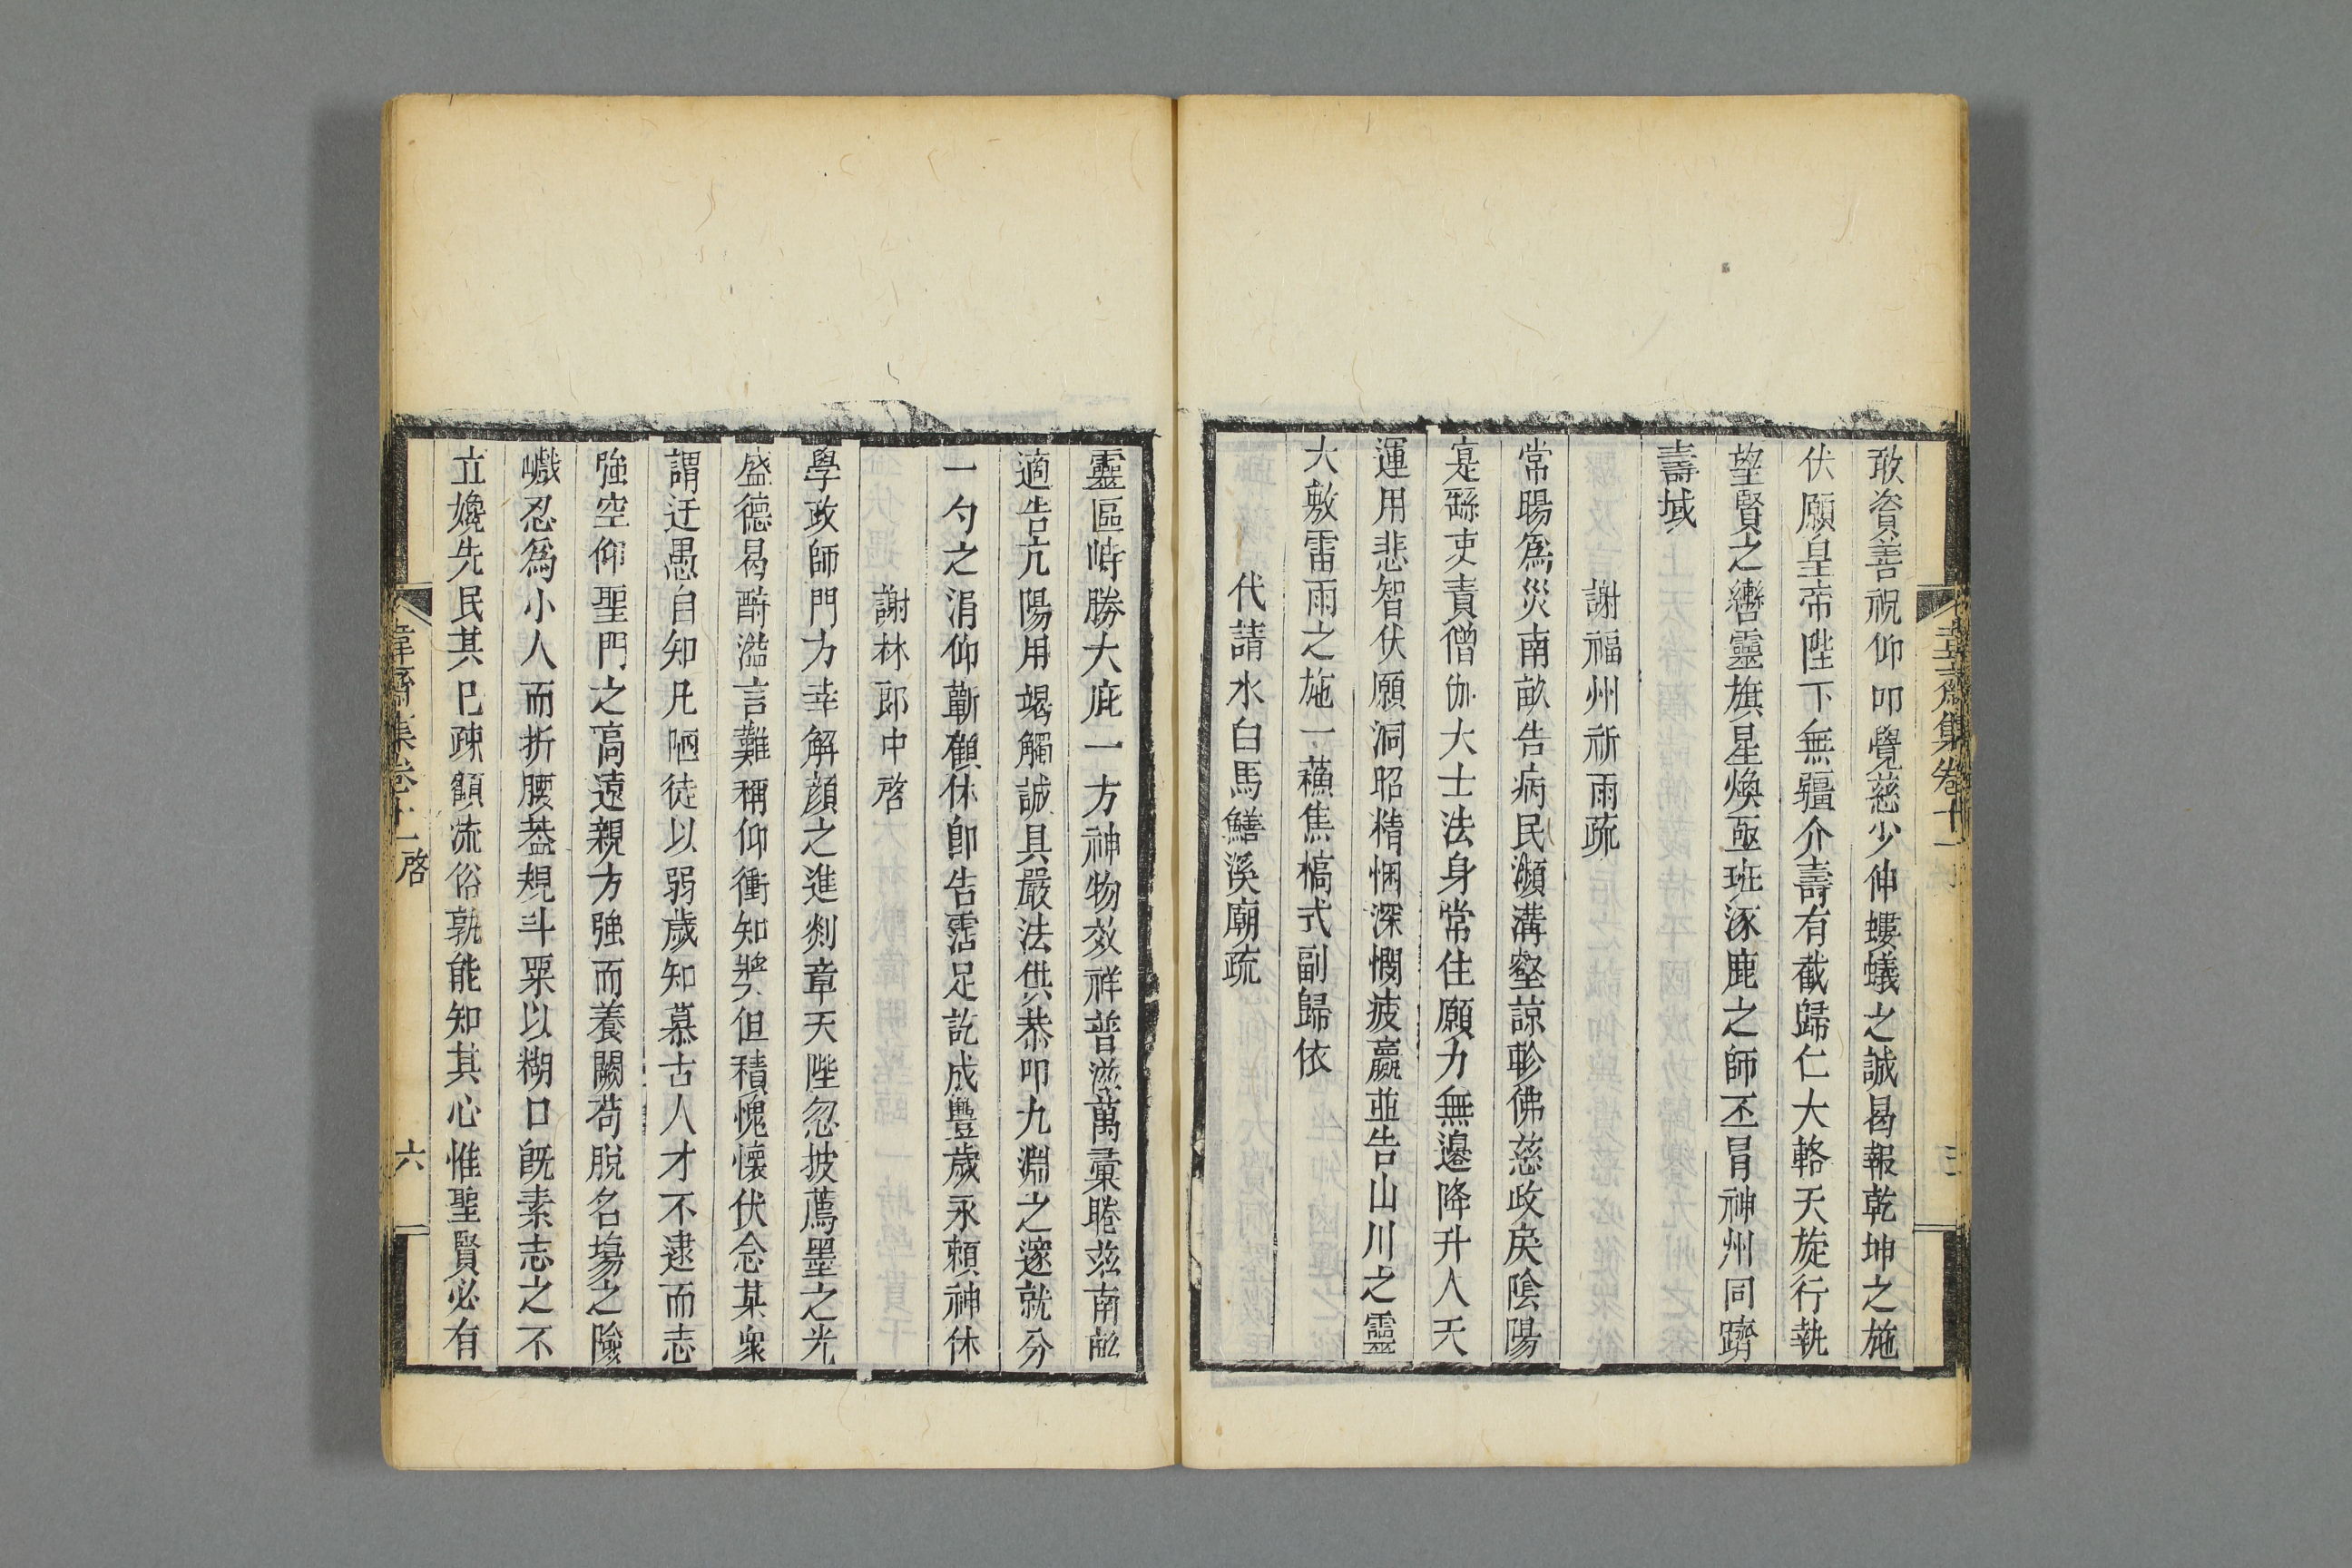 敢資善祝仰叩覺慈少伸螻蟻之誠曷報乾坤之施
伏願皇帝陛下無疆介壽有截歸仁大輅天旋行執
望賢之轡靈旗星煥亟班涿鹿之師丕冒神州同躋
壽域
謝福州祈雨疏
常暘爲災南畝告病民瀕溝壑諒軫佛慈政戾陰陽
寔繇吏責僧伽大士法身常住願力無邊降升人天
運用悲智伏願洞昭精悃深憫疲羸並告山川之靈
大敷雷雨之施一蘓焦槁式副歸依
代請水白馬鱔溪廟疏
靈區峙勝大庇一方神物效祥普滋萬彙睠茲南畝
適告亢陽用竭觸誠具嚴法供恭叩九淵之邃就分
一勺之涓仰蘄顧休卽告霑足訖成豐歲永賴神休
謝林郎中啓
學政師門力幸解顔之進剡章天陛忽披薦墨之光
盛德曷酧溢言難稱仰衝知奬但積愧懷伏念某衆
謂迂愚自知凡陋徒以弱歲知慕古人才不逮而志
強空仰聖門之高遠親方強而養闕苟脫名塲之險
巇忍爲小人而折腰葢規斗粟以糊口旣素志之不
立媿先民其巳疎顧流俗孰能知其心惟聖賢必有
韋齋集卷十一
啓
六